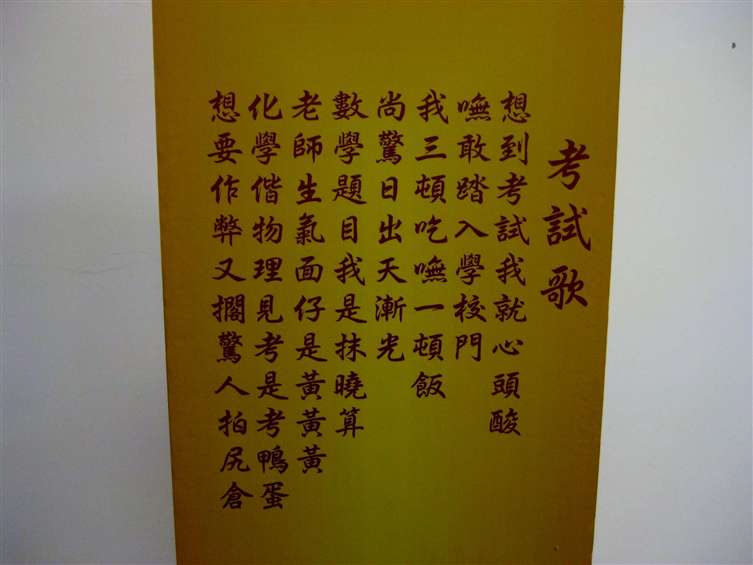 考試歌
想到考試我就心頭酸
嘸敢踏入學校門
我三頓吃嘸一頓飯
尚驚日出天漸光
數學題目我是抹曉算
老師生氣面仔是黃黃黃
化學偕物理見考是考鴨蛋
想要作弊又擱驚人拍尻倉